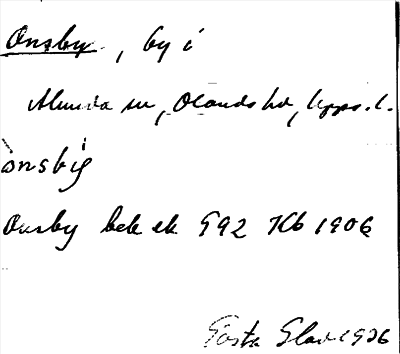 Onsby, by i
Alunda sn, Olands hd, Upps. l.
ònsbÿ
Onsby bebek 592 Kb 1906
Gösta Glav 1926